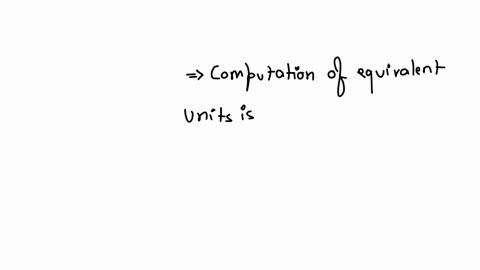 => Computation of equivalent
units is